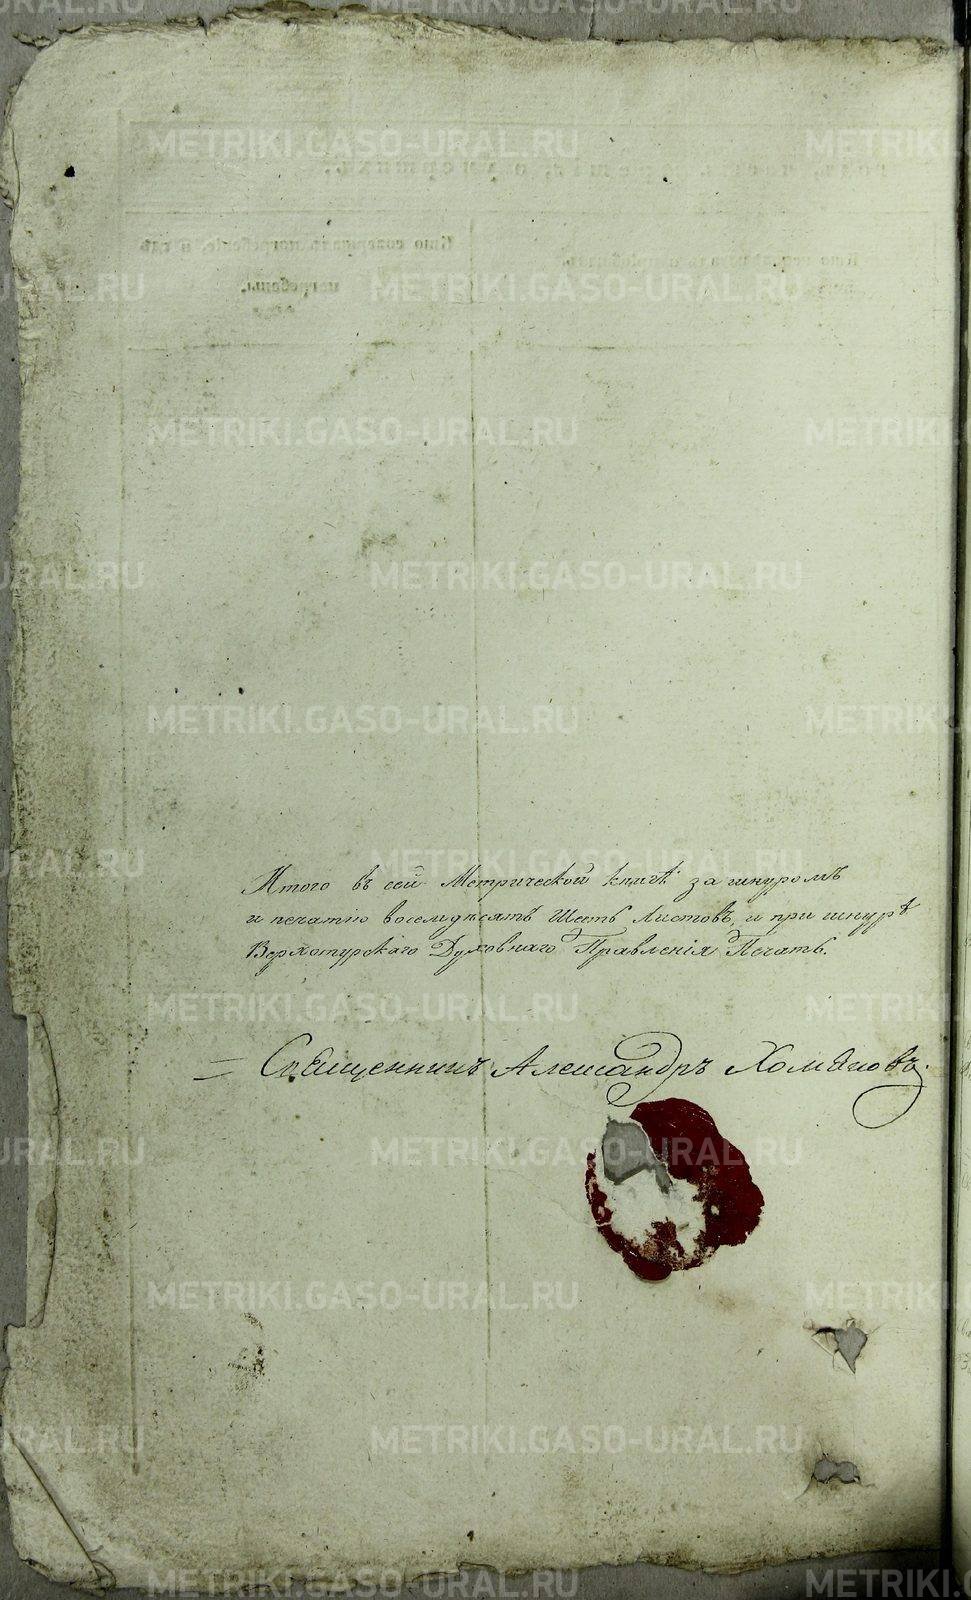 Итого въ сей Метрической книгѣ за шнуромъ
и печатію восемдесятъ шесть листовъ, и при шнурѣ
Верхотурскаго Духовнаго Правленія Печать.
Священникъ Александръ Хомяковъ.
METRIKI.GASO-URAL.RU